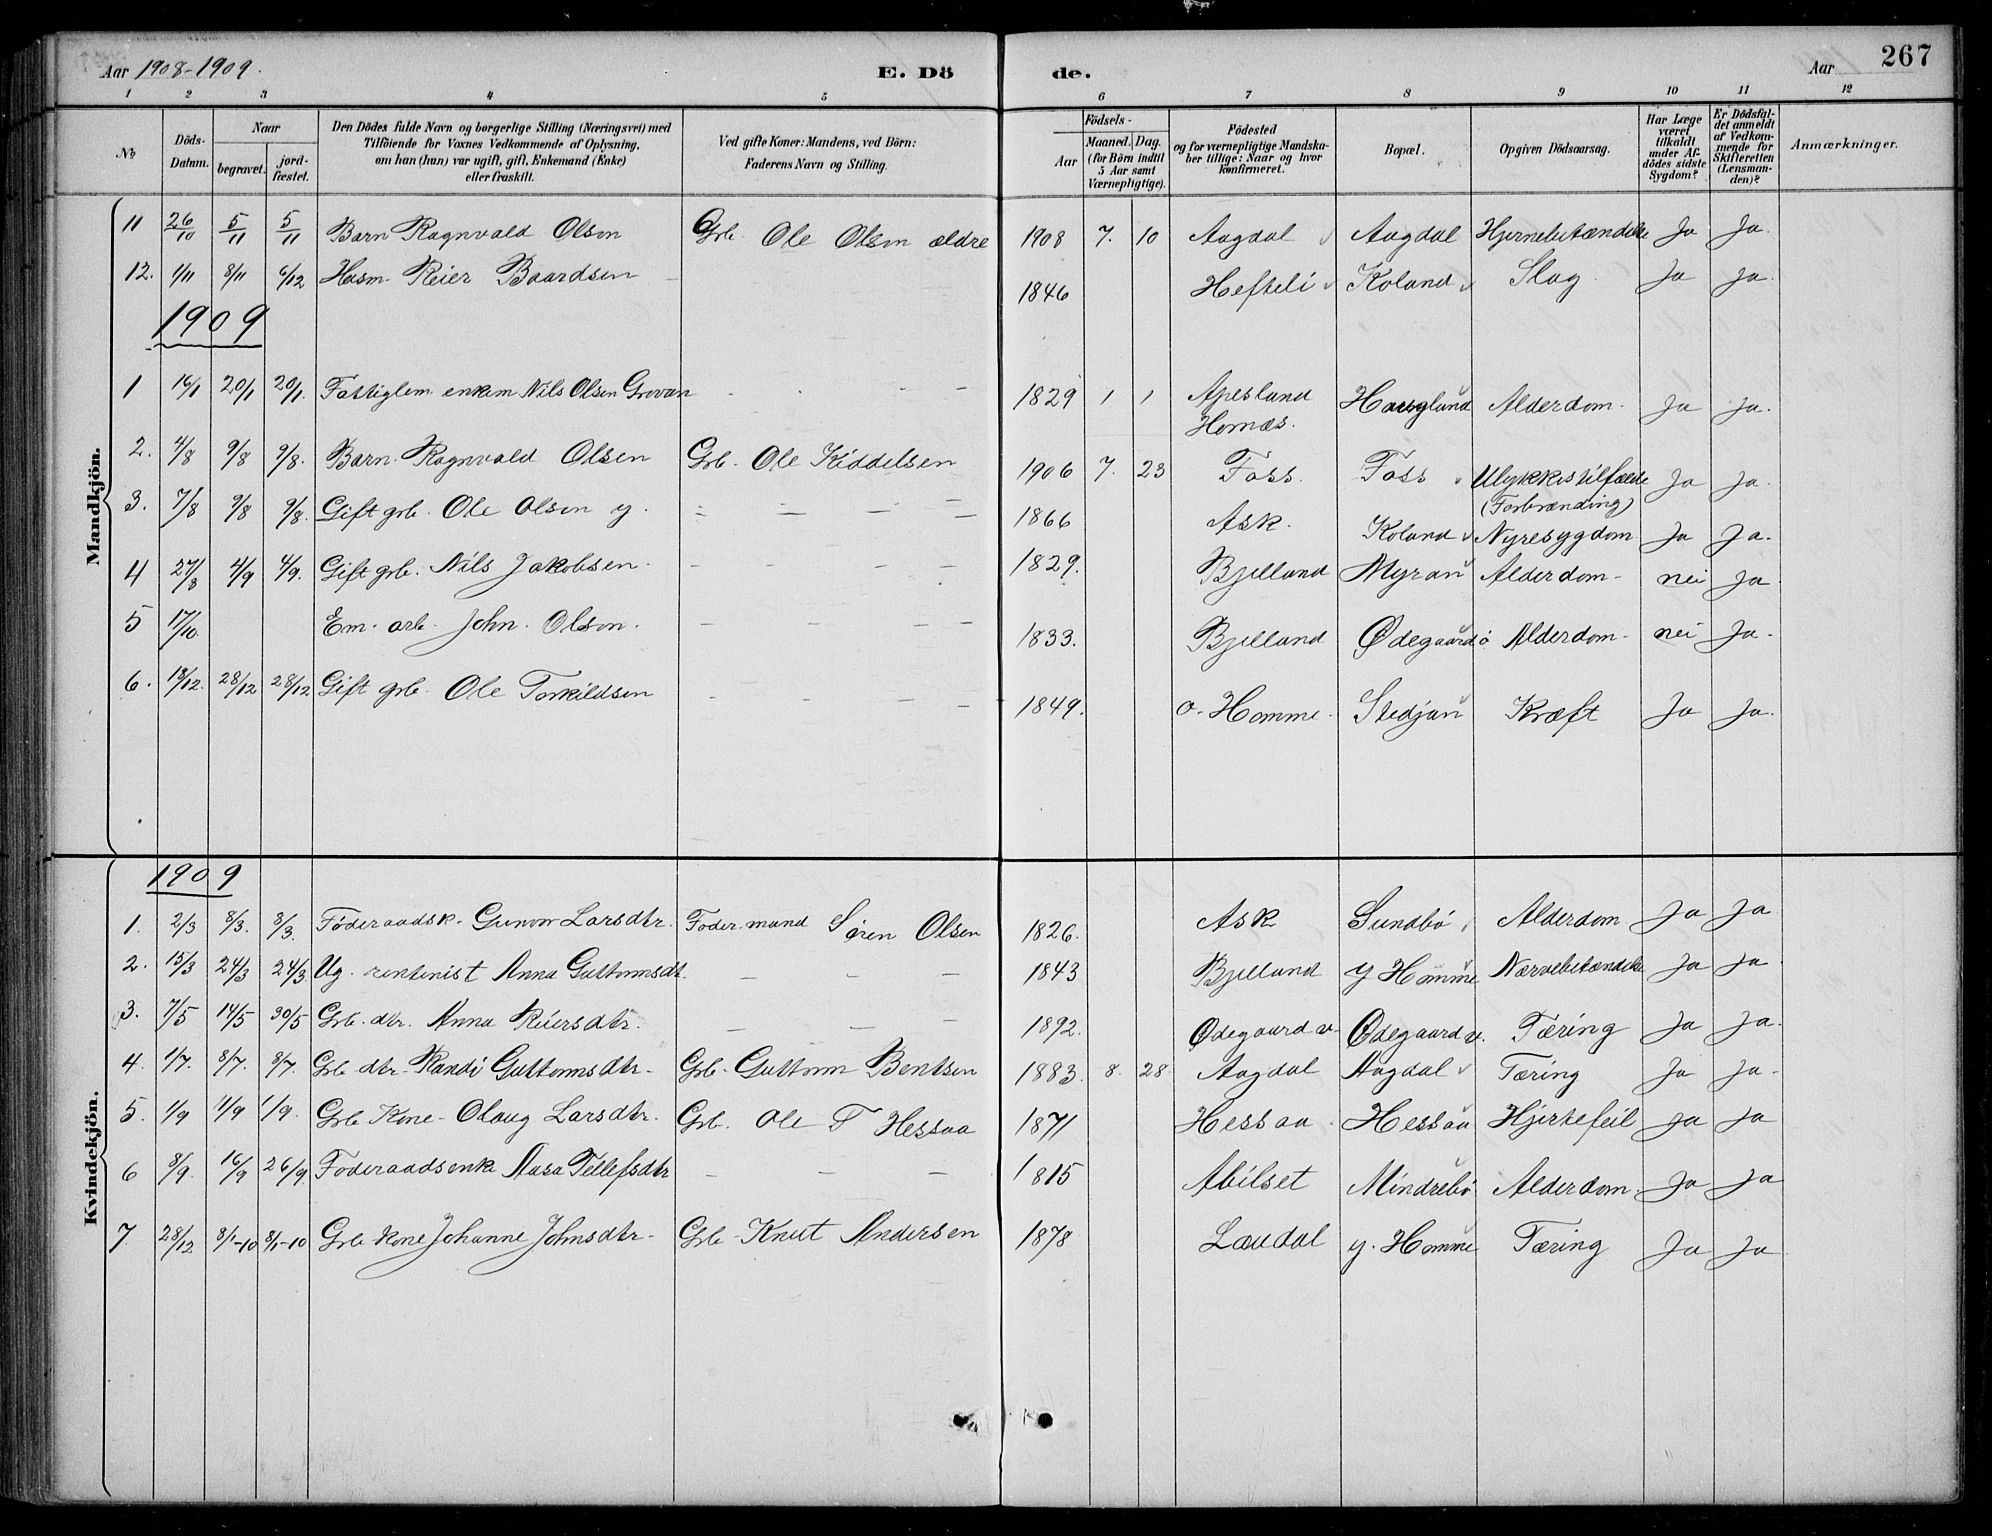 267
Aar 1908-1909.
E. Dö de.
Aar
1 2 3 4 5 6 7 8 9 10 11 12
No.
Döds-Datum.
Naar begravet. jordfæstet.
Den Dödes fulde Navn og borgerlige Stilling (Næringsvei) med Tilföiende for Voxnes Vedkommende af Oplysning, om han (hun) var ugift, gift, Enkemand (Enke) eller fraskilt.
Ved gifte Koner: Mandens, ved Börn: Faderens Navn og Stilling.
Födsels-
Aar Maaned. Dag. (for Börn indtil 5 Aar samt Værnepligtige).
Födested og for værnepligtige Mandskaber tillige: Naar og hvor konfirmeret.
Bopæl.
Opgiven Dödsaarsag.
Har Læge været tilkaldt under Afdödes sidste Sygdom?
Er Dödsfaldet anmeldt af Vedkommende for Skifteretten (Lensmanden)?
Anmærkninger.
Mandkjön.
11 26/10 5/11 5/11 Barn Ragnvald Olson Grb. Ole Olsen ældre 1908 7. 10 Aagdal Aagdal Hjernebetændelse Ja Ja.
12. 1/11 8/11 6/12 Husm. Reier Baardsen 1846 Hefteli Koland Slag Ja Ja.
1909
1 16/1 20/1 20/1. Fattiglem enkem Nils Olsen Grovan 1829 Apesland Homæs. Hauglund Alderdom. Ja Ja.
2. 4/8 9/8 9/8. Barn. Ragnvald Olsen Grb. Ole Kiddelsen 1906 7. 23 Foss. Foss Ulykkestilfælde (Forbrænding) Ja Ja.
3. 7/8 9/8 9/8. Gift grb. Ole Olsen y. 1866 Ask. Koland Nyresygdom Ja Ja.
4 27/8 4/9 4/9. Gift grb. Nils Jakobsen. 1829. Bjelland Myran Alderdom- nei Ja
5 17/10. Em. arb. John. Olson. 1833. Bjelland Ødegaard ö Alderdom- nei Ja.
6. 18/12. 28/12 28/12 Gift grb. Ole Torkildsen 1849. o. Homme. Stedjan Kræft Ja Ja.
Kvindekjön.
1909
1. 2/3 8/3. 8/3. Föderaadsk. Gunvor Larsdtr. Föder.mand Søren Olsen 1826. Ask Sundbö Alderdom Ja Ja
2. 15/3 24/3 24/3 Ug. rentenist Anna Guttormsdt. 1843 Bjelland y Homme Nærvebetændelse Ja Ja
3. 7/5 14/5 30/5 Grb. dtr. Anna Reiersdtr. 1892. Ødegaard v. Ødegaard v. Tæring Ja Ja.
4. 1/7. 8/7. 8/7. Grb dtr. Randi Guttormsdtr- Grb. Guttorm Bentsen 1883. 8. 28 Aagdal Aagdal Tæring Ja Ja.
5. 1/9 11/9 1/9. Grb. Kone- Olaug Larsdtr. Grb. Ole T Hessaa 1871 Hessaa Hessaa Hjertefeil Ja Ja
6 8/9. 16/9 26/9 Föderaadsenk Aasa Tellefsdtr 1815 Abilset Mindrebö Alderdom. Ja Ja
7 28/12 8/1-10 8/1-10 Grb Kone Johanne Johnsdtr- Grb. Knut Andersen 1878 Laudal y. Homme Tæring Ja Ja